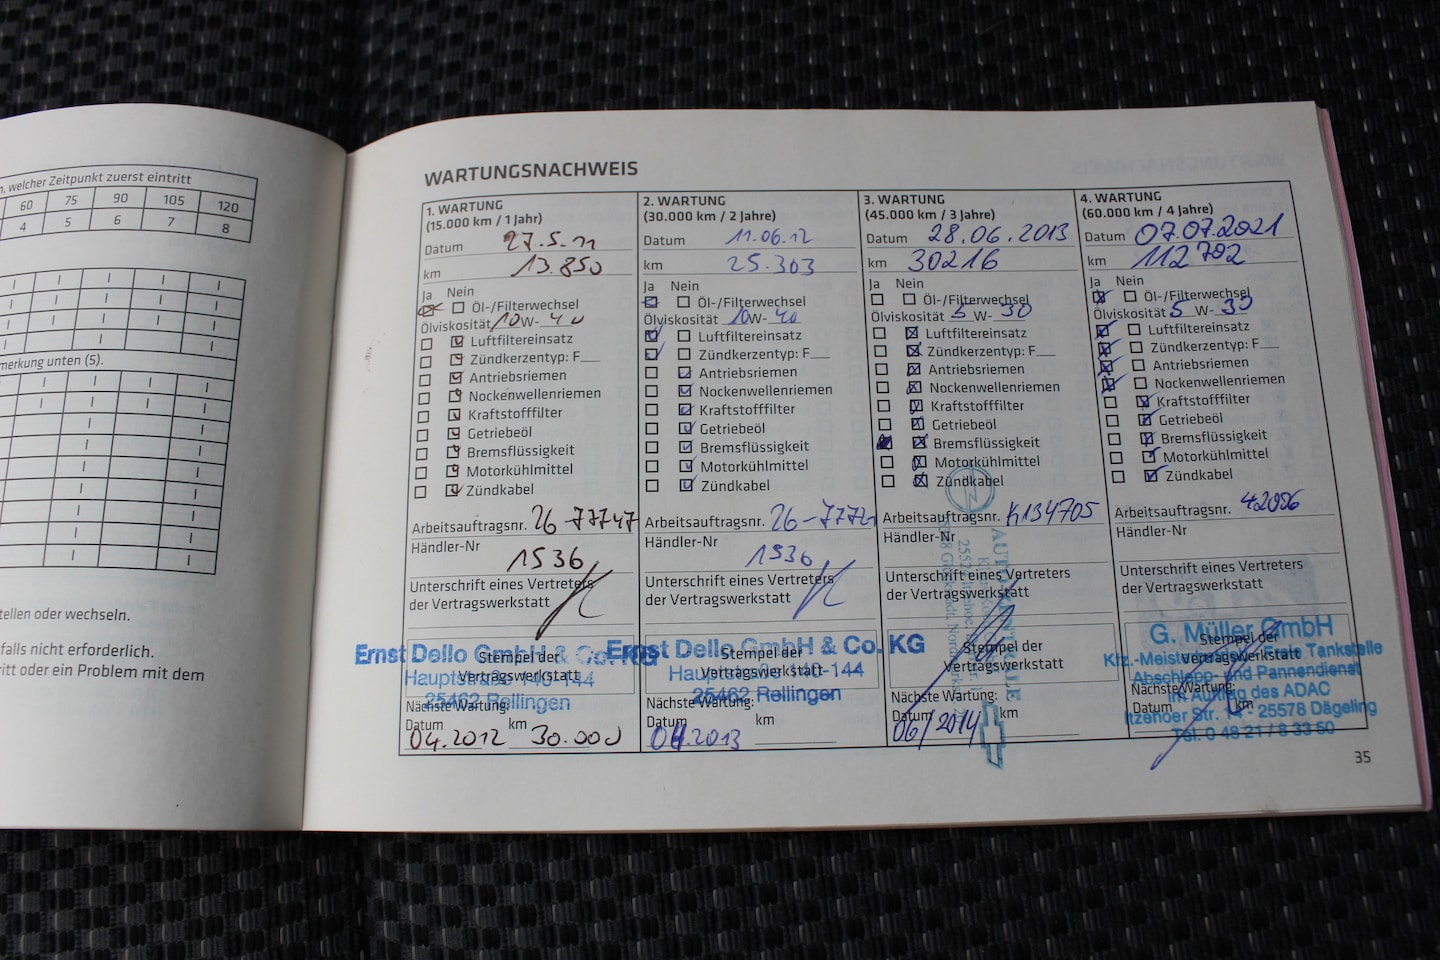 , welcher Zeitpunkt zuerst eintritt
60 75 90 105 120
4 5 6 7 8
merkung unten (5).
tellen oder wechseln.
falls nicht erforderlich.
ritt oder ein Problem mit dem
WARTUNGSNACHWEIS
1. WARTUNG
(15.000 km / 1 Jahr)
Datum 27.5.11
km 13.850
Ja Nein
Öl-/Filterwechsel
Ölviskosität 10W-40
Luftfiltereinsatz
Zündkerzentyp: F
Antriebsriemen
Nockenwellenriemen
Kraftstofffilter
Getriebeöl
Bremsflüssigkeit
Motorkühlmittel
Zündkabel
Arbeitsauftragsnr. 26-77747
Händler-Nr
1536
Unterschrift eines Vertreters
der Vertragswerkstatt
Ernst Dello GmbH & Co. KG
Stempel der
Hauptstraße 140-144
Vertragswerkstatt
25462 Rellingen
Nächste Wartung:
Datum km
04.2012 30.000
2. WARTUNG
(30.000 km / 2 Jahre)
Datum 11.06.12
km 25.303
Ja Nein
Öl-/Filterwechsel
Ölviskosität 10W-40
Luftfiltereinsatz
Zündkerzentyp: F
Antriebsriemen
Nockenwellenriemen
Kraftstofffilter
Getriebeöl
Bremsflüssigkeit
Motorkühlmittel
Zündkabel
Arbeitsauftragsnr.
Händler-Nr
1536
Unterschrift eines Vertreters
der Vertragswerkstatt
Ernst Dello GmbH & Co. KG
Stempel der
Hauptstraße 140-144
Vertragswerkstatt
25462 Rellingen
Nächste Wartung:
Datum km
04.2013
3. WARTUNG
(45.000 km / 3 Jahre)
Datum 28.06.2013
km 30216
Ja Nein
Öl-/Filterwechsel
Ölviskosität 5W-30
Luftfiltereinsatz
Zündkerzentyp: F
Antriebsriemen
Nockenwellenriemen
Kraftstofffilter
Getriebeöl
Bremsflüssigkeit
Motorkühlmittel
Zündkabel
Arbeitsauftragsnr. K134705
Händler-Nr
Unterschrift eines Vertreters
der Vertragswerkstatt
Stempel der
Vertragswerkstatt
Nächste Wartung:
Datum km
06/2014
4. WARTUNG
(60.000 km / 4 Jahre)
Datum 07.07.2021
km 112702
Ja Nein
Öl-/Filterwechsel
Ölviskosität 5W-30
Luftfiltereinsatz
Zündkerzentyp: F
Antriebsriemen
Nockenwellenriemen
Kraftstofffilter
Getriebeöl
Bremsflüssigkeit
Motorkühlmittel
Zündkabel
Arbeitsauftragsnr. 42006
Händler-Nr
Unterschrift eines Vertreters
der Vertragswerkstatt
G. Müller GmbH
Stempel der
Kfz.-Meisterbetrieb Freie Tankstelle
Vertragswerkstatt
Abschlepp- und Pannendienst
im Auftrag des ADAC
Nächste Wartung:
Datum km
Itzehoer Str. - 25578 Dägeling
Tel. 0 48 21 / 8 33 50
35